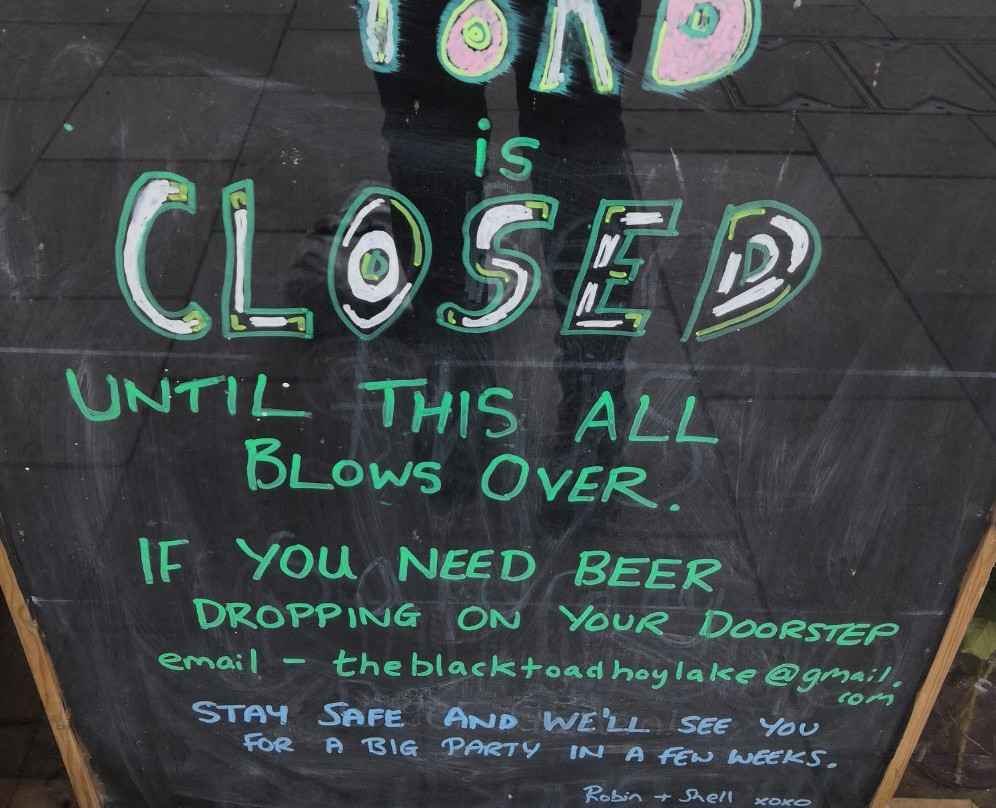 TOAD
is
CLOSED
UNTIL THIS ALL
BLOWS OVER.
IF YOU NEED BEER
DROPPING ON YOUR DOORSTEP
email - theblacktoadhoylake@gmail.
com
STAY SAFE AND WE'LL SEE YOU
FOR A BIG PARTY IN A FEW WEEKS.
Robin + Shell xoxo